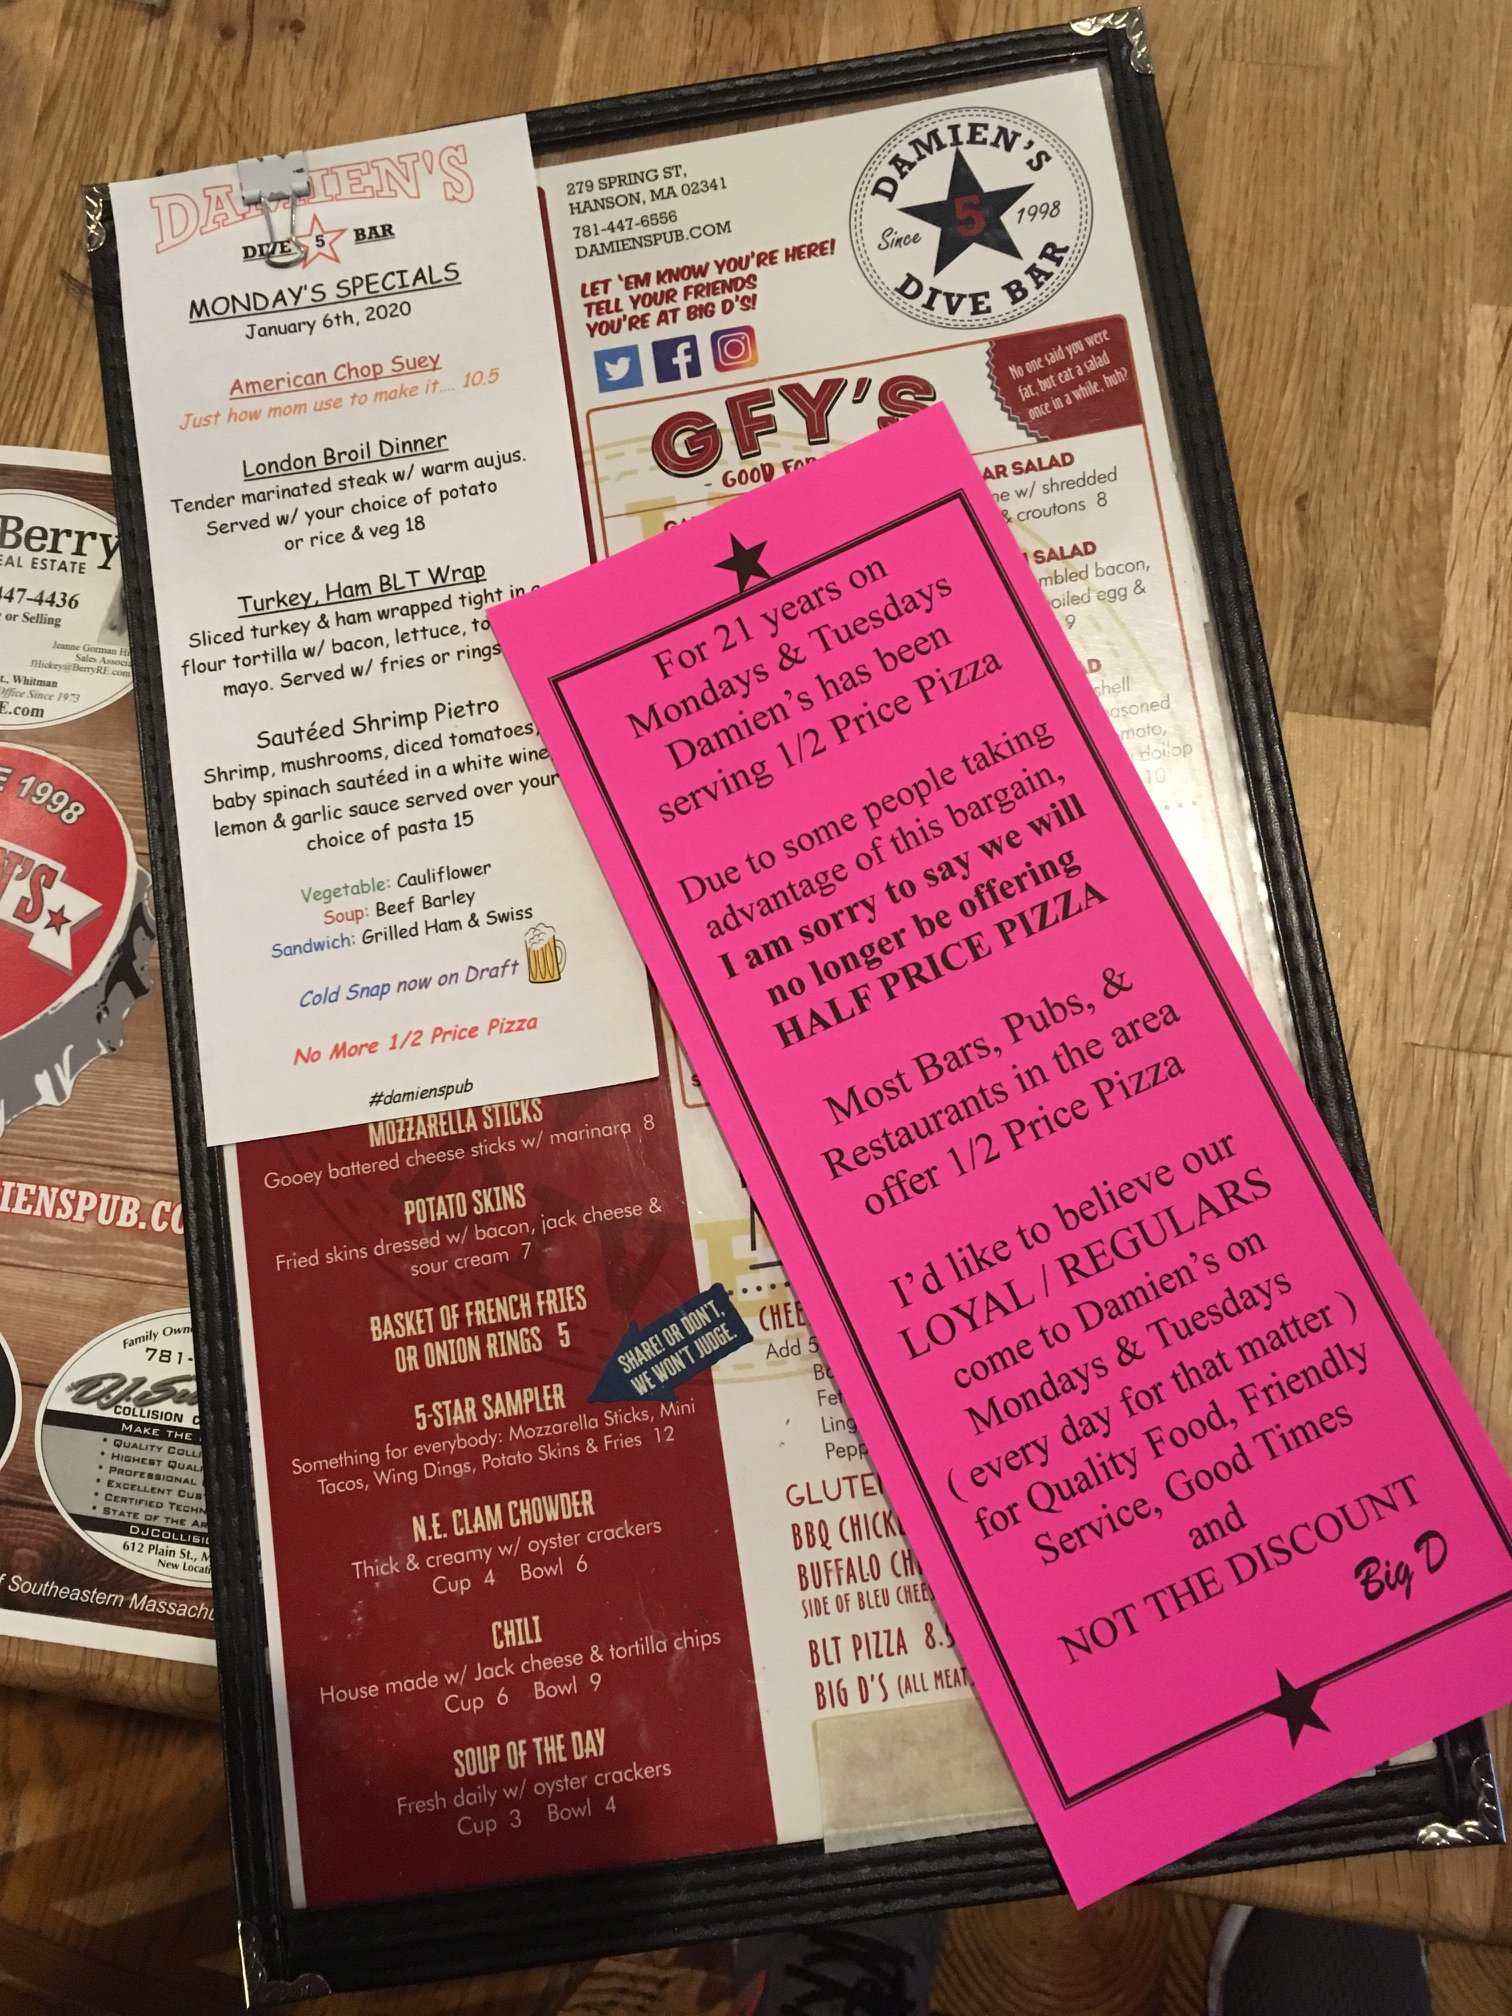 DAMIEN'S
DIVE 5 BAR
MONDAY'S SPECIALS
January 6th, 2020
American Chop Suey
Just how mom use to make it.... 10.5
London Broil Dinner
Tender marinated steak w/ warm aujus.
Served w/ your choice of potato
or rice & veg 18
Turkey, Ham BLT Wrap
Sliced turkey & ham wrapped tight in
flour tortilla w/ bacon, lettuce,
mayo. Served w/ fries or rings
Sautéed Shrimp Pietro
Shrimp, mushrooms, diced tomatoes,
baby spinach sautéed in a white wine
lemon & garlic sauce served over your
choice of pasta 15
Vegetable: Cauliflower
Soup: Beef Barley
Sandwich: Grilled Ham & Swiss
Cold Snap now on Draft
No More 1/2 Price Pizza
#damienspub
MOZZARELLA STICKS
Gooey battered cheese sticks w/ marinara 8
POTATO SKINS
Fried skins dressed w/ bacon, jack cheese &
sour cream 7
BASKET OF FRENCH FRIES
OR ONION RINGS 5
SHARE! OR DON'T,
WE WON'T JUDGE.
5-STAR SAMPLER
Something for everybody: Mozzarella Sticks, Mini
Tacos, Wing Dings, Potato Skins & Fries 12
N.E. CLAM CHOWDER
Thick & creamy w/ oyster crackers
Cup 4 Bowl 6
CHILI
House made w/ Jack cheese & tortilla chips
Cup 6 Bowl 9
SOUP OF THE DAY
Fresh daily w/ oyster crackers
Cup 3 Bowl 4
279 SPRING ST,
HANSON, MA 02341
781-447-6556
DAMIENSPUB.COM
LET 'EM KNOW YOU'RE HERE!
TELL YOUR FRIENDS
YOU'RE AT BIG D'S!
DAMIEN'S
Since 5 1998
DIVE BAR
No one said you were
fat, but eat a salad
once in a while, huh?
GFY'S
- GOOD FO
AR SALAD
w/ shredded
& croutons 8
SALAD
mbled bacon,
oiled egg &
9
shell
asoned
mato,
dollop
10
For 21 years on
Mondays & Tuesdays
Damien's has been
serving 1/2 Price Pizza
Due to some people taking
advantage of this bargain,
I am sorry to say we will
no longer be offering
HALF PRICE PIZZA
Most Bars, Pubs, &
Restaurants in the area
offer 1/2 Price Pizza
I'd like to believe our
LOYAL / REGULARS
come to Damien's on
Mondays & Tuesdays
( every day for that matter )
for Quality Food, Friendly
Service, Good Times
and
NOT THE DISCOUNT
Big D
CHEE
Add
GLUTE
BBQ CHICK
BUFFALO CH
SIDE OF BLEU CHEE
BLT PIZZA 8.5
BIG D'S (ALL MEAT
Berry
EAL ESTATE
447-4436
or Selling
Jeanne Gorman
Sales Associ
JHickey@BerryRE.com
Whitman
Office Since 1973
E.com
E 1998
N'S
IENSPUB.CO
Family Own
781-
COLLISION C
MAKE THE
• QUALITY COLLI
• HIGHEST QUAL
• PROFESSIONAL
• EXCELLENT CUS
• CERTIFIED TECHN
• STATE OF THE AR
DJCOLLISI
612 Plain St., M
New Locat
f Southeastern Massachu